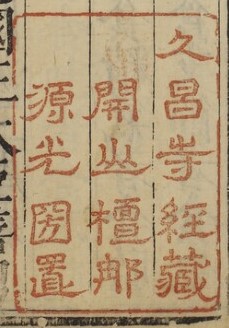 久昌寺經藏
開山檀那
源光圀置